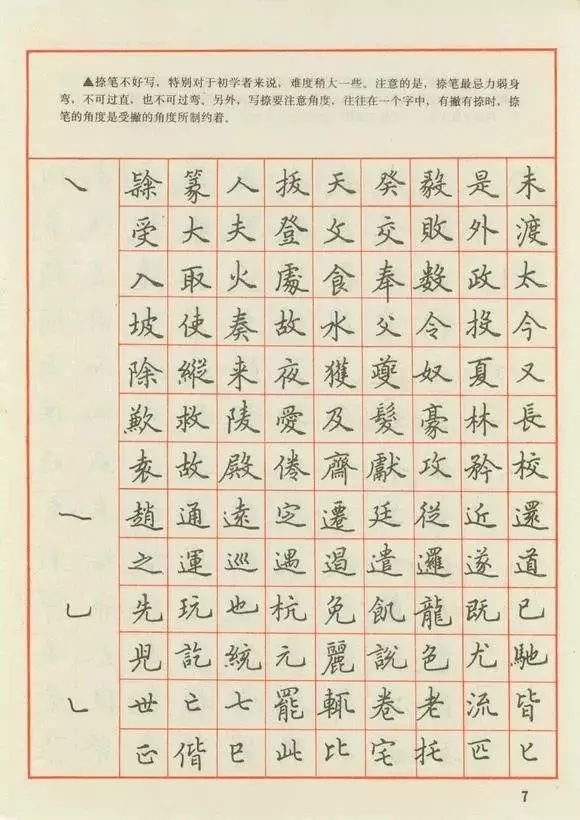 ▲捺笔不好写，特别对于初学者来说，难度稍大一些。注意的是，捺笔最忌力弱身
弯，不可过直，也不可过弯。另外，写捺要注意角度，往往在一个字中，有撇有捺时，捺
笔的角度是受撇的角度所制约着。
㇏ 篆 人 拔 天 癸 毅 是 未
受 大 夫 登 文 交 敗 外 渡
入 取 火 處 食 奉 数 政 太
坡 使 奏 故 水 父 令 投 今
除 縱 来 夜 獲 夔 奴 夏 又
歉 救 陵 愛 及 髮 豪 林 長
袁 故 殿 倦 齋 獻 攻 矜 校
趙 通 遠 定 遷 廷 從 近 還
之 運 巡 遇 遏 遣 邏 遂 道
先 玩 也 杭 免 飢 龍 既 已
兕 訖 統 元 麗 說 色 尤 馳
世 亡 七 罷 輒 卷 老 流 皆
正 偕 巳 此 比 宅 托 匹 匕
7